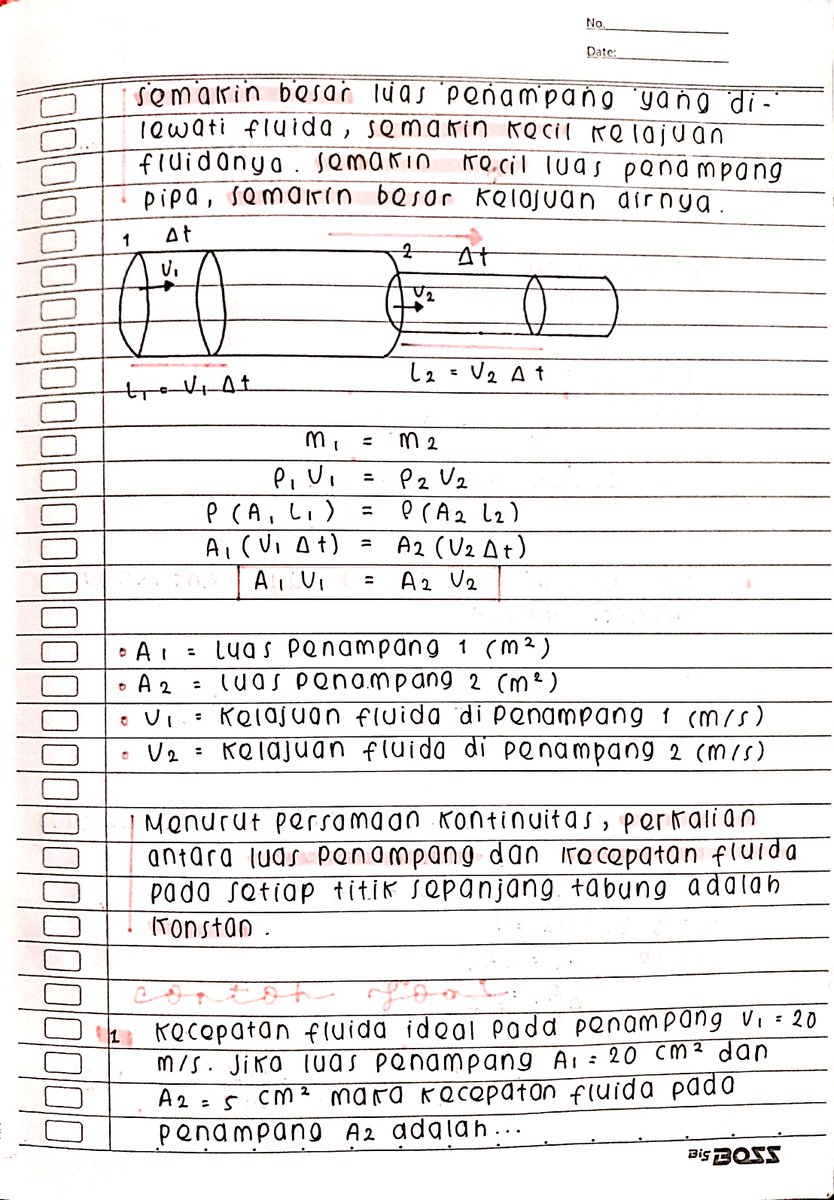 No.
Date:
semakin besar luas penampang yang di-
lewati fluida, semakin kecil kelajuan
fluidanya. semakin kecil luas penampang
pipa, semakin besar kelajuan airnya.
1 Δt
2 Δt
V₁
V₂
L₁ = V₁ Δt
L₂ = V₂ Δt
m₁ = m₂
ρ₁ V₁ = ρ₂ V₂
ρ (A₁ L₁) = ρ (A₂ L₂)
A₁ (V₁ Δt) = A₂ (V₂ Δt)
A₁ V₁ = A₂ V₂
• A₁ = Luas penampang 1 (m²)
• A₂ = luas penampang 2 (m²)
• V₁ = kelajuan fluida di penampang 1 (m/s)
• V₂ = kelajuan fluida di penampang 2 (m/s)
Menurut persamaan kontinuitas, perkalian
antara luas penampang dan kecepatan fluida
pada setiap titik sepanjang tabung adalah
konstan.
contoh soal:
1 kecepatan fluida ideal pada penampang V₁ = 20
m/s. Jika luas penampang A₁ = 20 cm² dan
A₂ = 5 cm² maka kecepatan fluida pada
penampang A₂ adalah...
Big BOSS